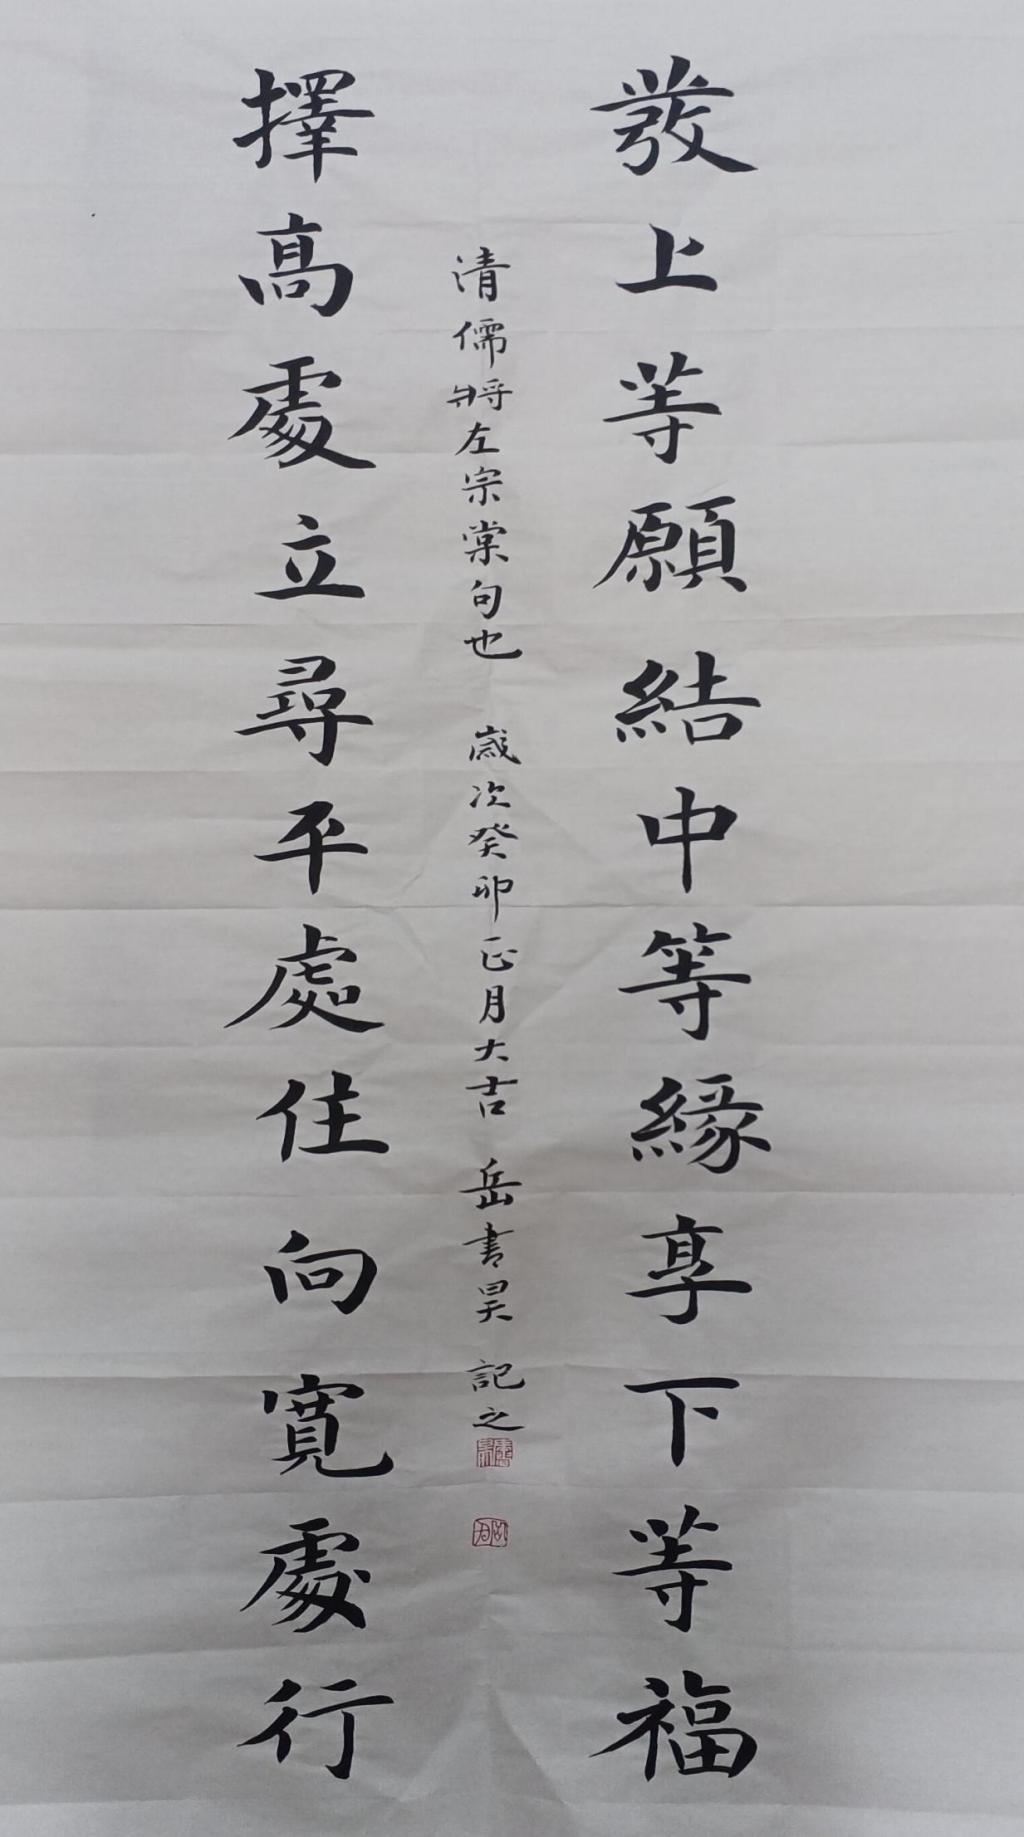 發上等願結中等緣享下等福
擇高處立尋平處住向寬處行
清儒將左宗棠句也 歲次癸卯正月大吉 岳書昊 記之